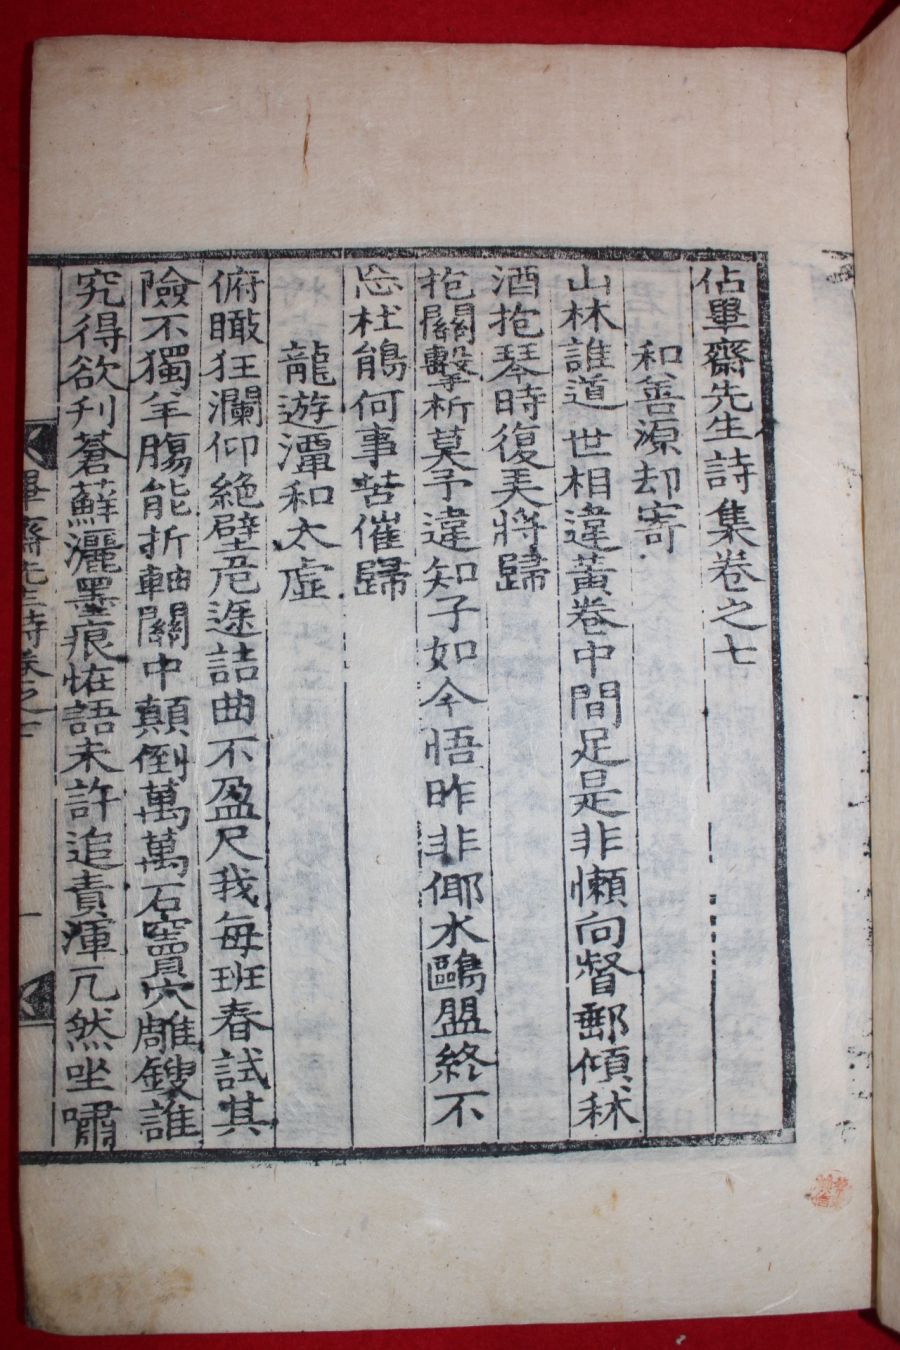 佔畢齋先生詩集卷之七
和善源却寄
山林誰道世相違黃卷中間足是非懶向督郵傾秫
酒抱琴時復美將歸
抱關擊柝莫予違知子如今悟昨非㑘水鷗盟終不
忘杜鵑何事苦催歸
龍遊潭和太虛
俯瞰狂瀾仰絶壁危途詰曲不盈尺我每班春試其
險不獨羊膓能折軸關中顛倒萬萬石竇穴雕鎪誰
究得欲刋蒼蘚灑墨痕恠語未許追責渾兀然坐嘯
畢齋先生詩卷之七 一